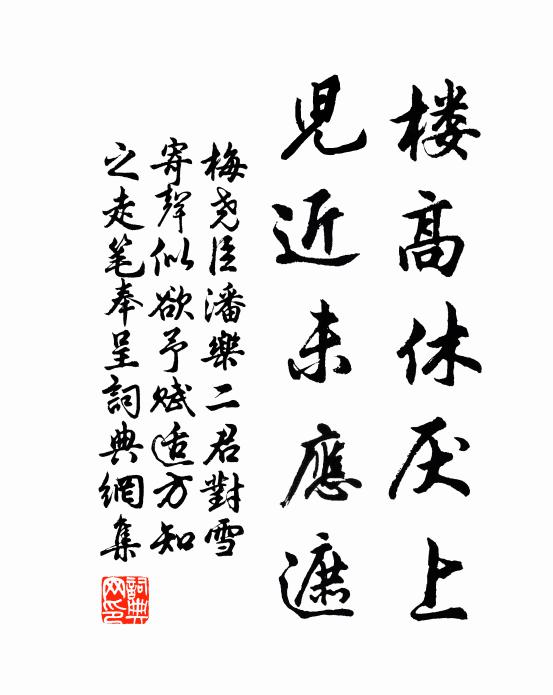 楼高休厌上
児近未應遮
梅堯臣潘樂二君對雪
寄聲似欲予賦适方知
之走笔奉呈詞典網集
詞典
网印